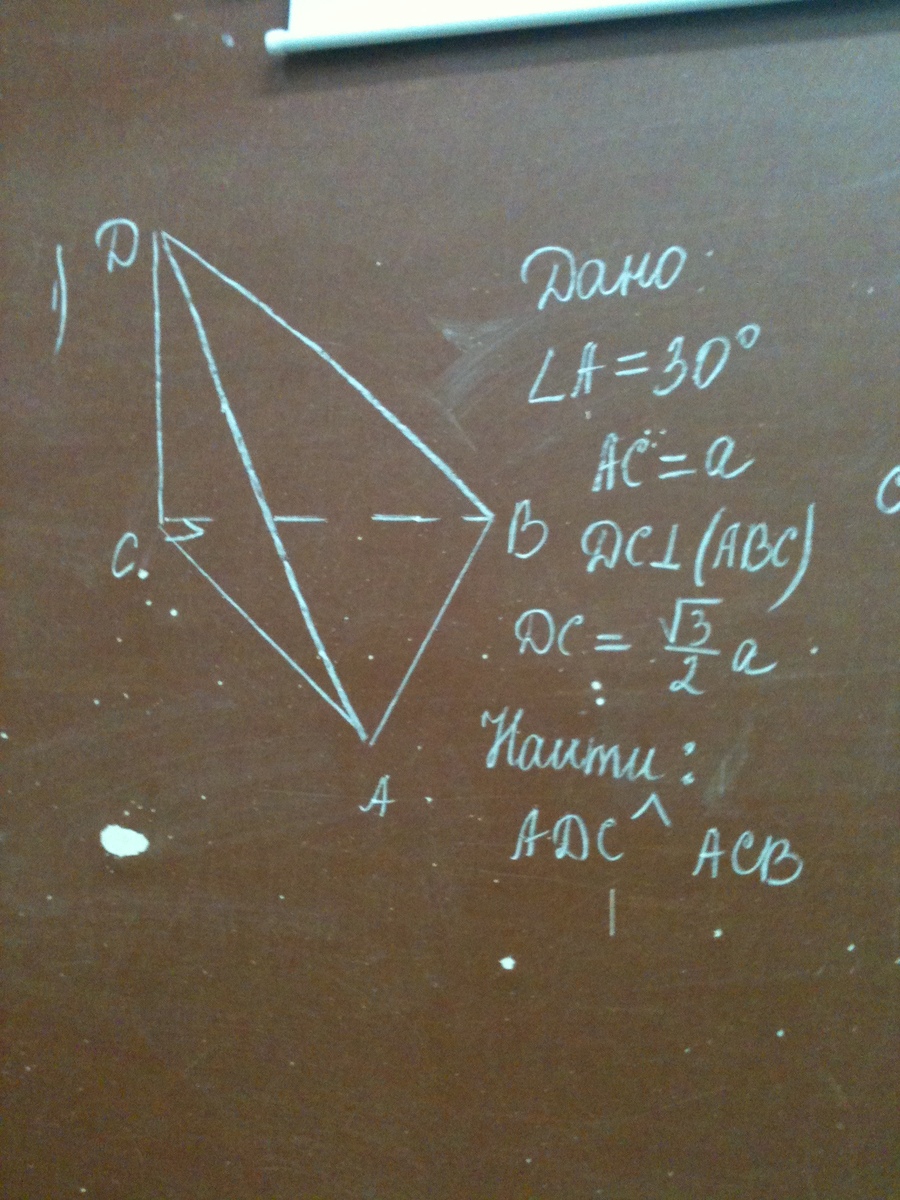 1)
D
C
B
A
Дано:
∠A = 30°
AC = a
DC⊥(ABC)
DC = √3/2 a
Найти:
ADC ^ ACB